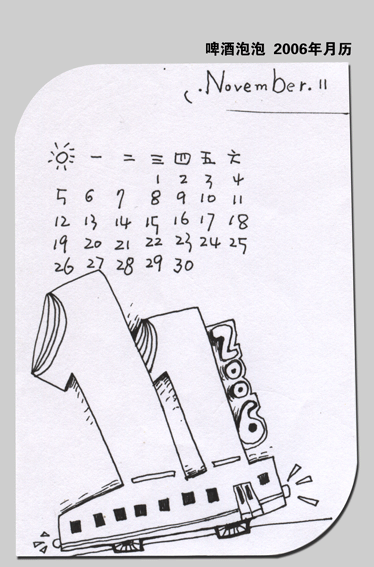 啤酒泡泡 2006年月历
.November.11
一 二 三 四 五 六
1 2 3 4
5 6 7 8 9 10 11
12 13 14 15 16 17 18
19 20 21 22 23 24 25
26 27 28 29 30
11
2006